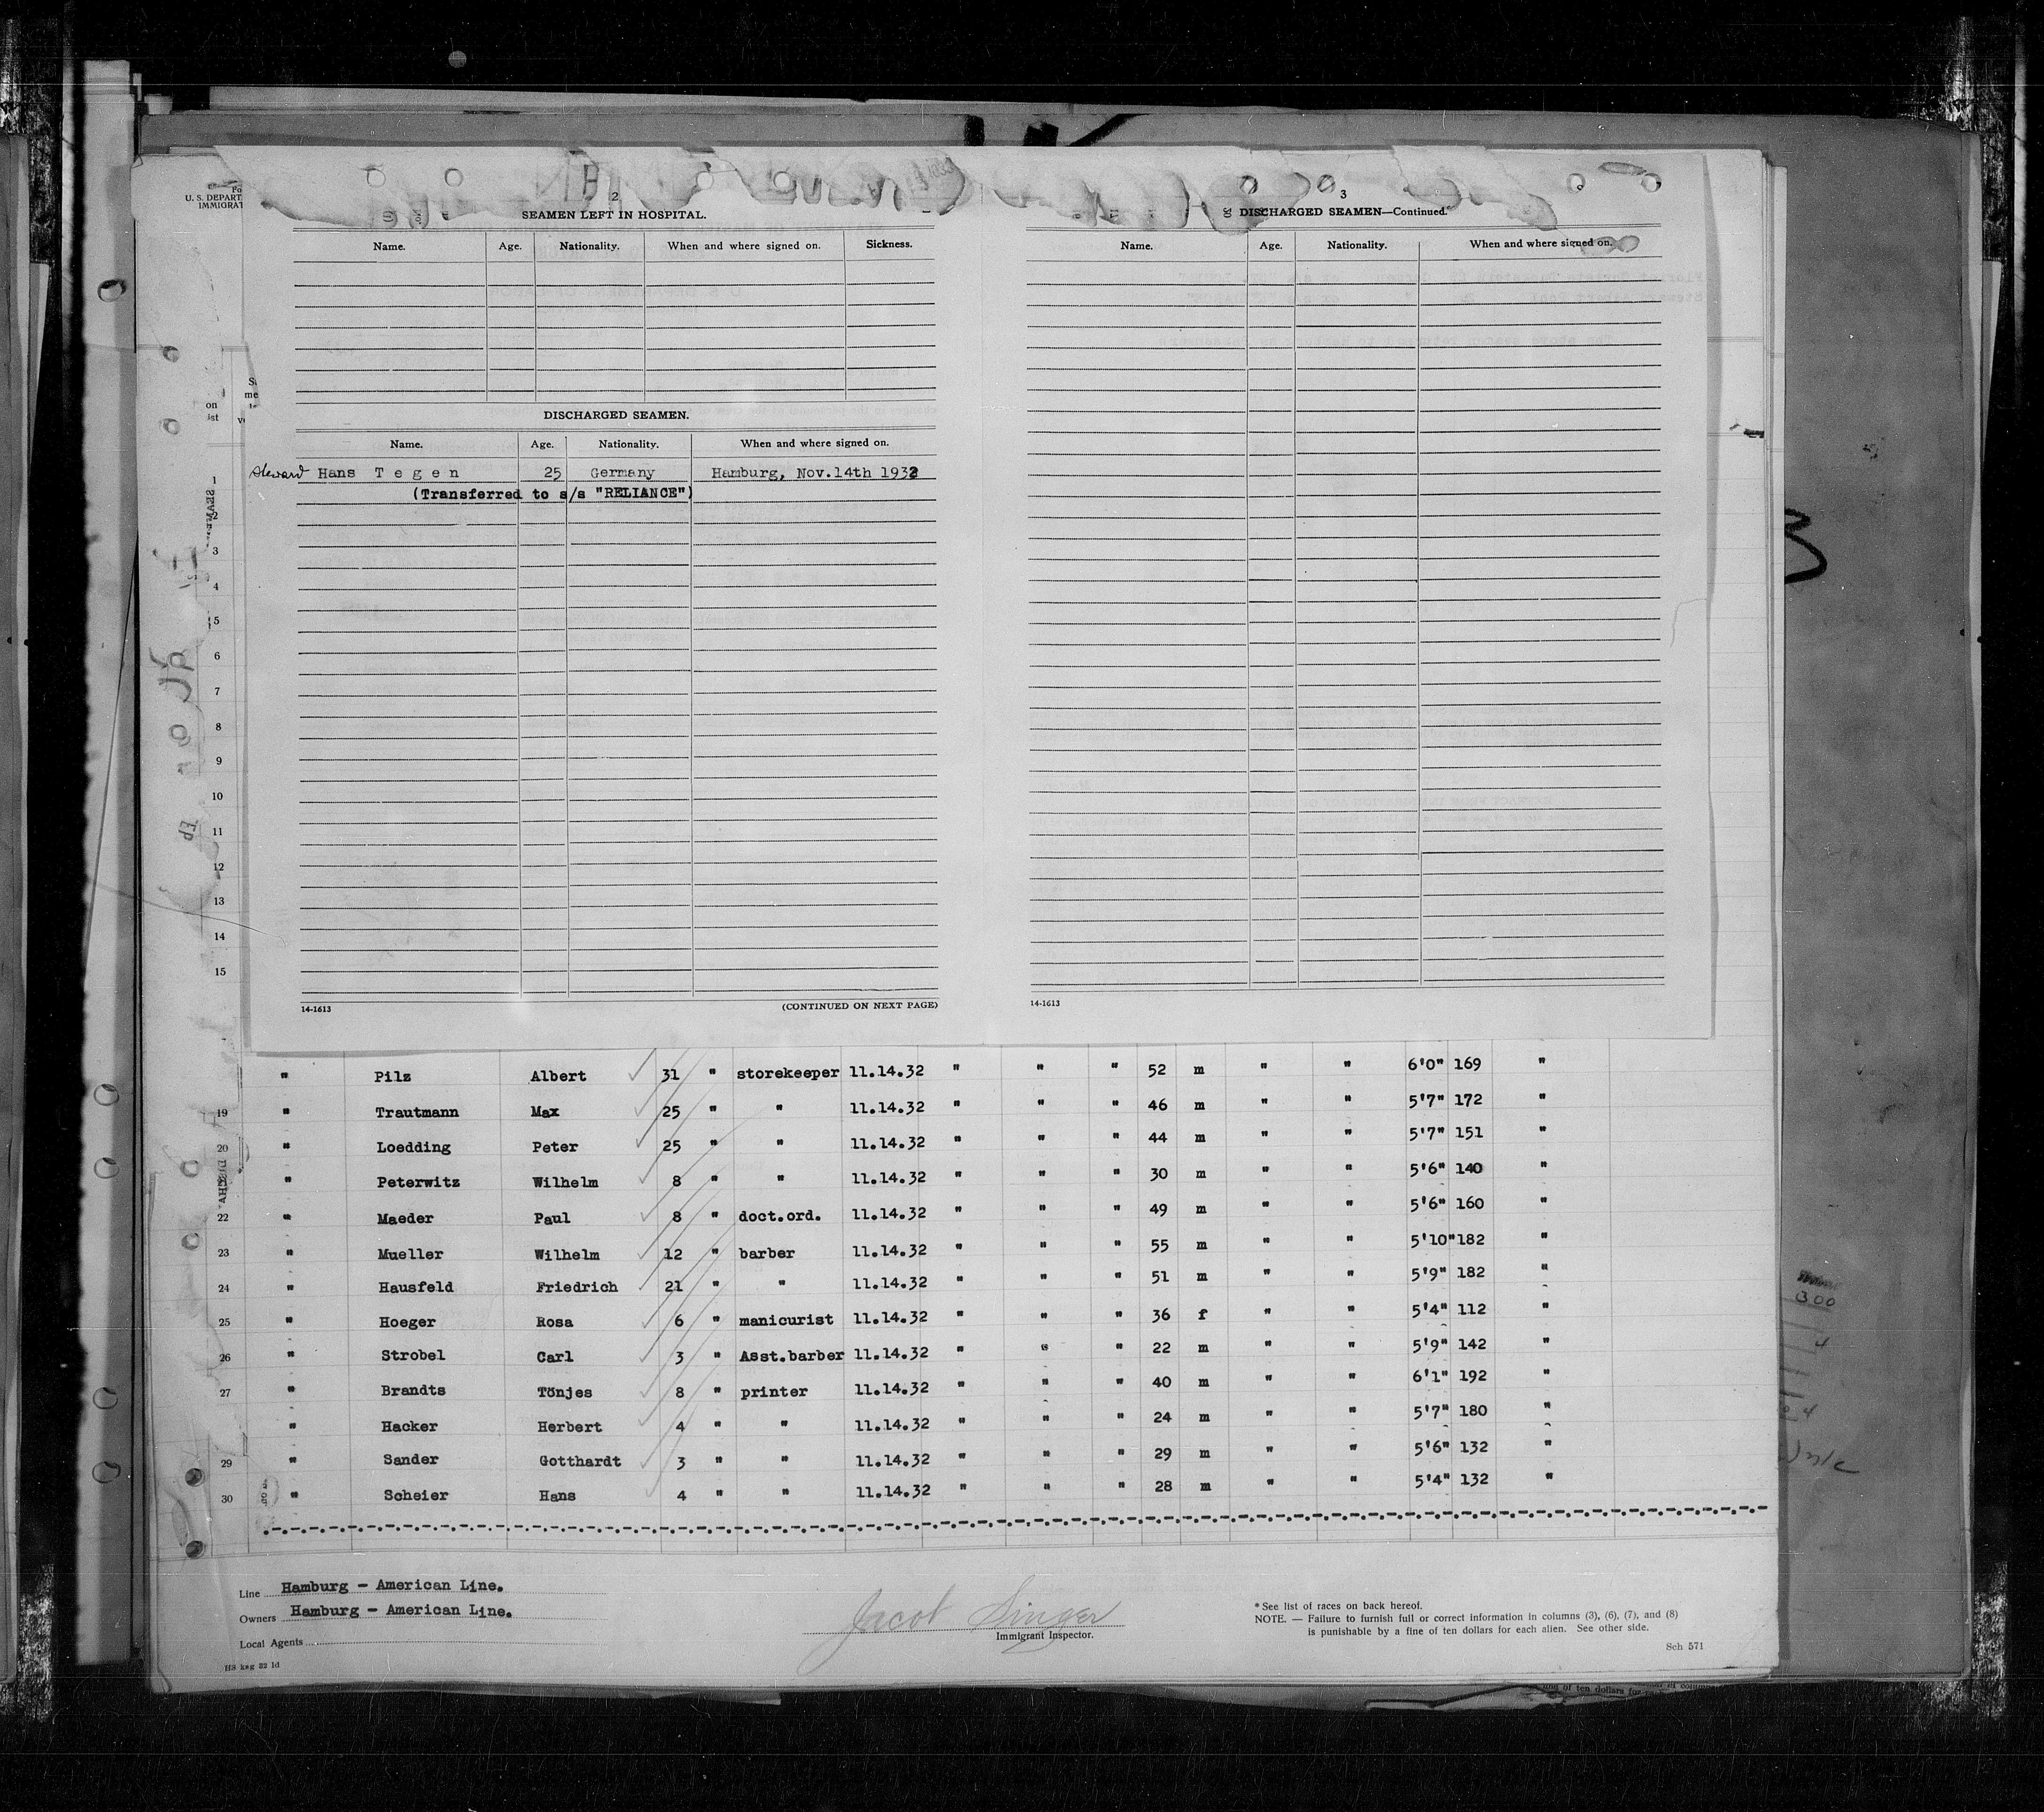 Fo
U. S. DEPART
IMMIGRAT
2
SEAMEN LEFT IN HOSPITAL.
Name. Age. Nationality. When and where signed on. Sickness.
DISCHARGED SEAMEN.
Name. Age. Nationality. When and where signed on.
Steward Hans Tegen 25 Germany Hamburg, Nov.14th 1932
(Transferred to s/s "RELIANCE")
14-1613 (CONTINUED ON NEXT PAGE)
3
DISCHARGED SEAMEN—Continued.
Name. Age. Nationality. When and where signed on.
14-1613
on
ist
1
2
3
4
5
6
7
8
9
10
11
12
13
14
15
" Pilz Albert 31 " storekeeper 11.14.32 " " " 52 m " " 6'0" 169 "
19 " Trautmann Max 25 " " 11.14.32 " " " 46 m " " 5'7" 172 "
20 " Loedding Peter 25 " " 11.14.32 " " " 44 m " " 5'7" 151 "
" Peterwitz Wilhelm 8 " " 11.14.32 " " " 30 m " " 5'6" 140 "
22 " Maeder Paul 8 " doct.ord. 11.14.32 " " " 49 m " " 5'6" 160 "
23 " Mueller Wilhelm 12 " barber 11.14.32 " " " 55 m " " 5'10" 182 "
24 " Hausfeld Friedrich 21 " " 11.14.32 " " " 51 m " " 5'9" 182 "
25 " Hoeger Rosa 6 " manicurist 11.14.32 " " " 36 f " " 5'4" 112 "
26 " Strobel Carl 3 " Asst.barber 11.14.32 " " " 22 m " " 5'9" 142 "
27 " Brandts Tönjes 8 " printer 11.14.32 " " " 40 m " " 6'1" 192 "
" Hacker Herbert 4 " " 11.14.32 " " " 24 m " " 5'7" 180 "
29 " Sander Gotthardt 3 " " 11.14.32 " " " 29 m " " 5'6" 132 "
30 " Scheier Hans 4 " " 11.14.32 " " " 28 m " " 5'4" 132 "
Line Hamburg - American Line.
Owners Hamburg - American Line.
Local Agents
Jacob Singer
Immigrant Inspector.
* See list of races on back hereof.
NOTE. — Failure to furnish full or correct information in columns (3), (6), (7), and (8)
is punishable by a fine of ten dollars for each alien. See other side.
Sch 571
300